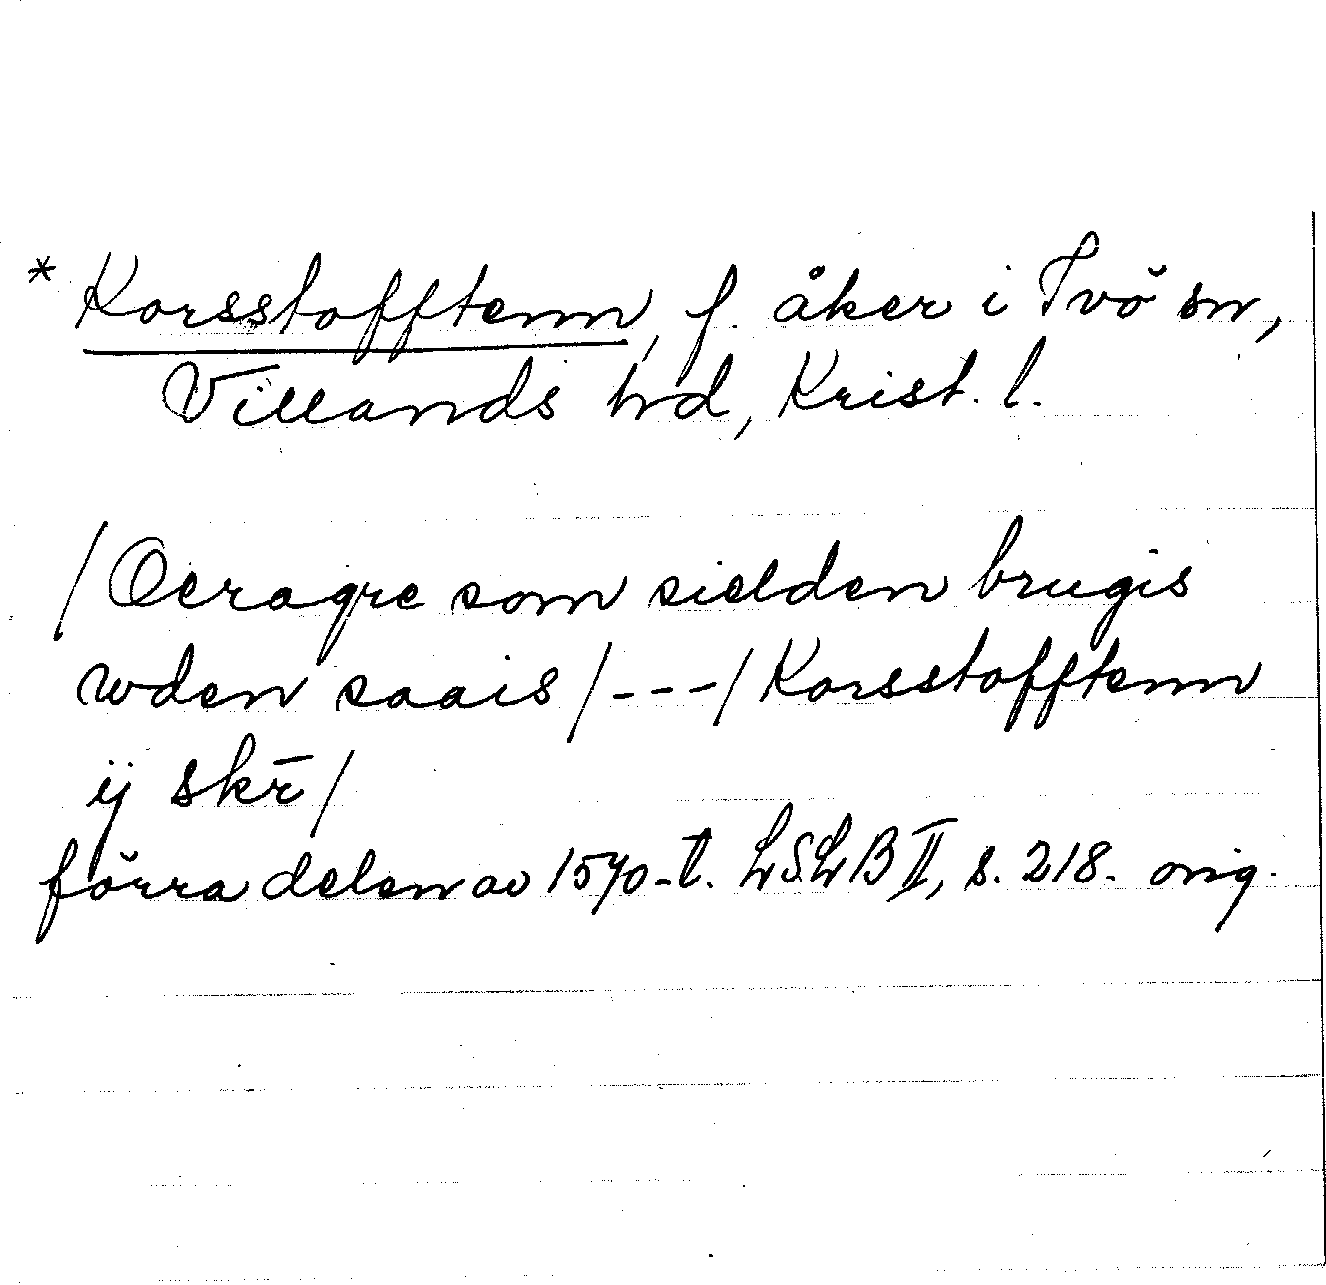 * Korsstofftenn, f. åker i Ivö sn,
Villands hd, Krist. l.
/Oeragre som sielden brugis
wden saais/---/Korsstofftenn
ij skr̄/
förra delen av 1570-t. LSLB II, s. 218. orig.